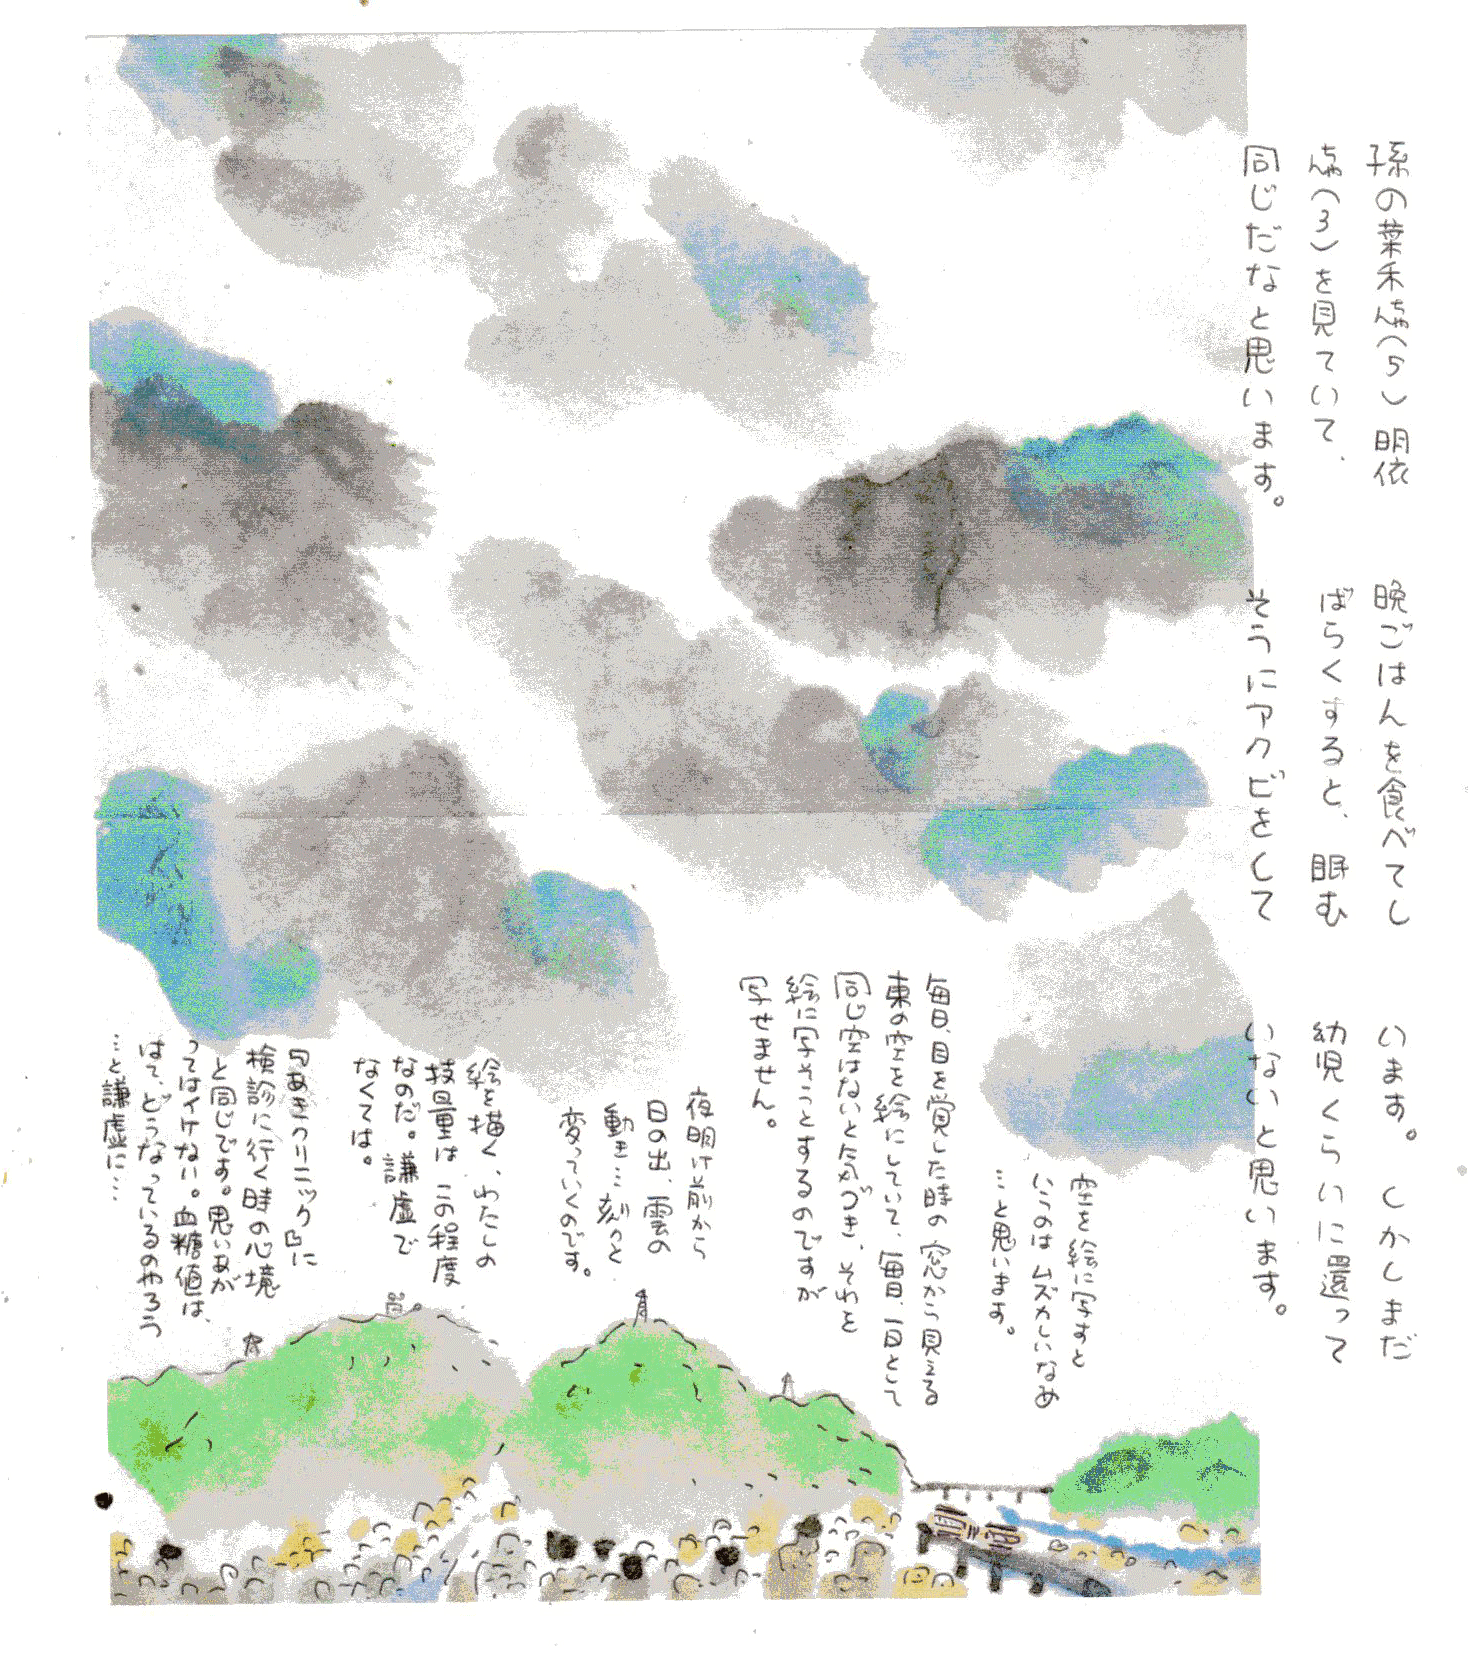 孫の菜禾ちゃん(5) 明依
ちゃん(3)を見ていて、
同じだなと思います。
晩ごはんを食べてし
ばらくすると、眠む
そうにアクビをして
います。しかしまだ
幼児くらいに還って
いないと思います。
空を絵に写すと
いうのはムズかしいなぁ
…と思います。
毎日、目を覚した時の窓から見える
東の空を絵にしていて、毎日、一日として
同じ空はないと気づき、それを
絵に写そうとするのですが
写せません。
夜明け前から
日の出、雲の
動き…刻々と
変っていくのです。
絵を描く、わたしの
技量は この程度
なのだ。謙虚で
なくては。
『あきクリニック』に
検診に行く時の心境
と同じです。思いあが
ってはイケない。血糖値は、
はて、どうなっているのやろう
…と謙虚に…